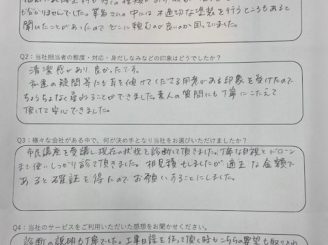 ありませんでした。業者さんの中には不適切な塗装を行うところもあると
聞いたことがあったので
Q2：当社担当者の態度・対応・身だしなみなどの印象はどうでしたか？
清潔感があり良かったです。
私達の疑問等にも耳を傾けてくださる印象を受けたので
することができました。素人の質問にも丁寧にこたえて
頂けて安心できました。
Q3：様々な会社がある中、何が決め手となり当社をお選びいただけましたか？
市民講座を受講し現在の状態を診断して頂きました。丁寧な目視とドローン
まで使いしっかり診て頂きました。相見積もしましたが適正な金額で
あると確証を得たのでお願いすることにしました。
Q4：当社のサービスをご利用いただいた感想をお聞かせください。
診断の説明も丁寧でした。